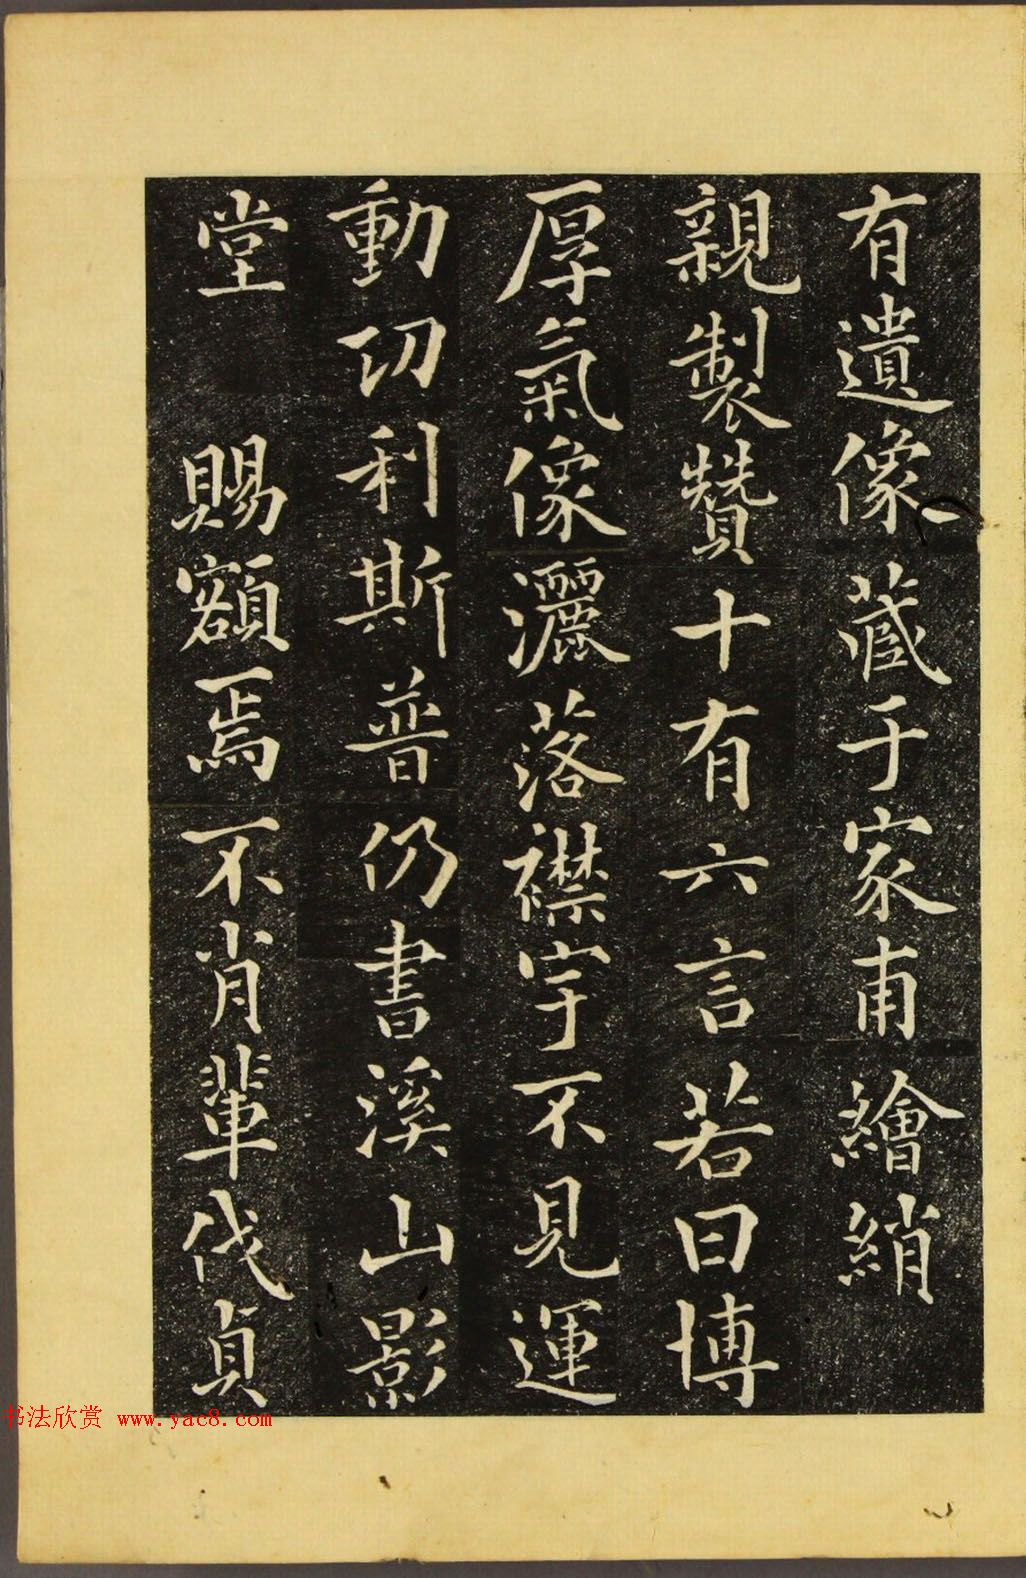 有遺像藏于家甫繪綃
親製贊十有六言若曰博
厚氣像灑落襟宇不見運
動功利斯普仍書溪山影
堂 賜額焉不肖輩伐貞
书法欣赏 www.yac8.com